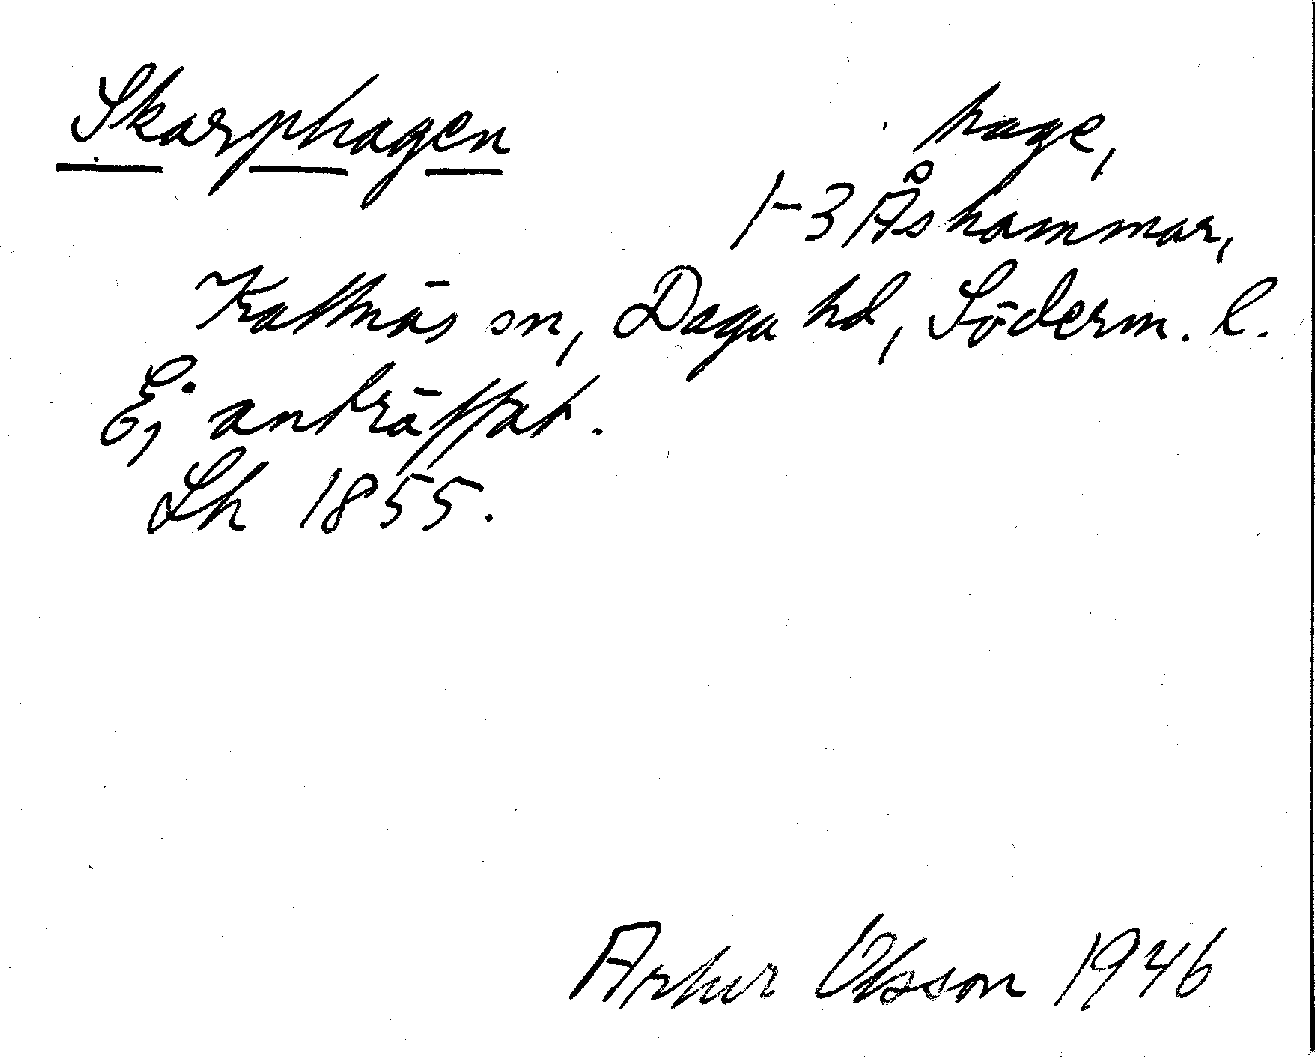 Skarphagen
hage,
1-3 Åshammar,
Kattnäs sn, Daga hd, Söderm. l.
Ej anträffat.
Lh 1855.
Artur Olsson 1946